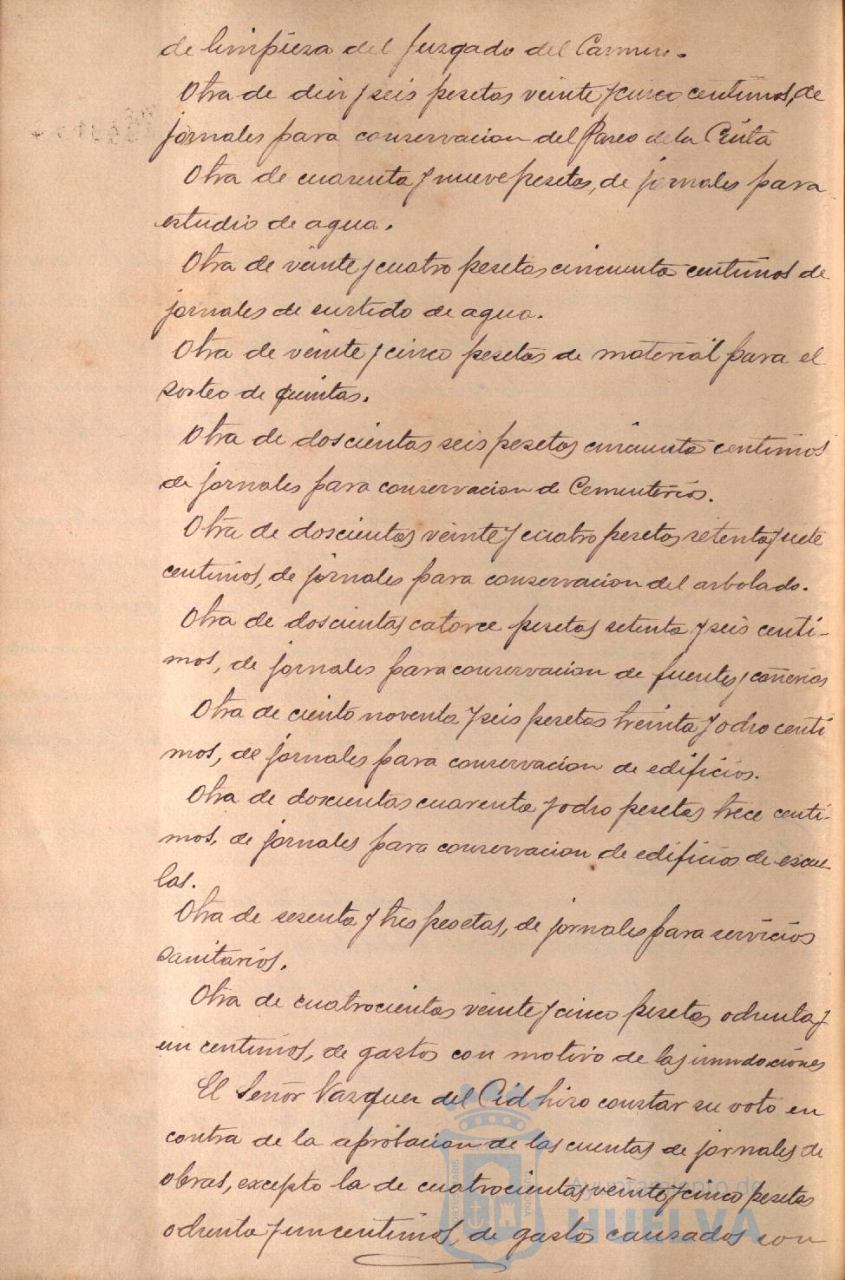 de limpieza del Juzgado del Carmen.
Otra de diez y seis pesetas veinte y cinco centimos, de
jornales para conservacion del Paseo de la Cinta
Otra de cuarenta y nueve pesetas, de jornales para
estudio de agua.
Otra de veinte y cuatro pesetas cincuenta centimos de
jornales de surtido de agua.
Otra de veinte y cinco pesetas de material para el
sorteo de quintas.
Otra de doscientas seis pesetas cincuenta centimos
de jornales para conservacion de Cementerios.
Otra de doscientas veinte y cuatro pesetas setenta y siete
centimos, de jornales para conservacion del arbolado.
Otra de doscientas catorce pesetas setenta y seis centi-
mos, de jornales para conservacion de fuentes y cañerias
Otra de ciento noventa y seis pesetas treinta y ocho centi
mos, de jornales para conservacion de edificios.
Otra de doscientas cuarenta y ocho pesetas trece centi-
mos, de jornales para conservacion de edificios de escue-
las.
Otra de sesenta y tres pesetas, de jornales para servicios
sanitarios.
Otra de cuatrocientas veinte y cinco pesetas ochenta y
un centimos, de gastos con motivo de las inundaciones
El Señor Vazquez del Cid hizo constar su voto en
contra de la aprobacion de las cuentas de jornales de
obras, excepto la de cuatrocientas veinte y cinco pesetas
ochenta y un centimos, de gastos causados con
Ayuntamiento de
HUELVA